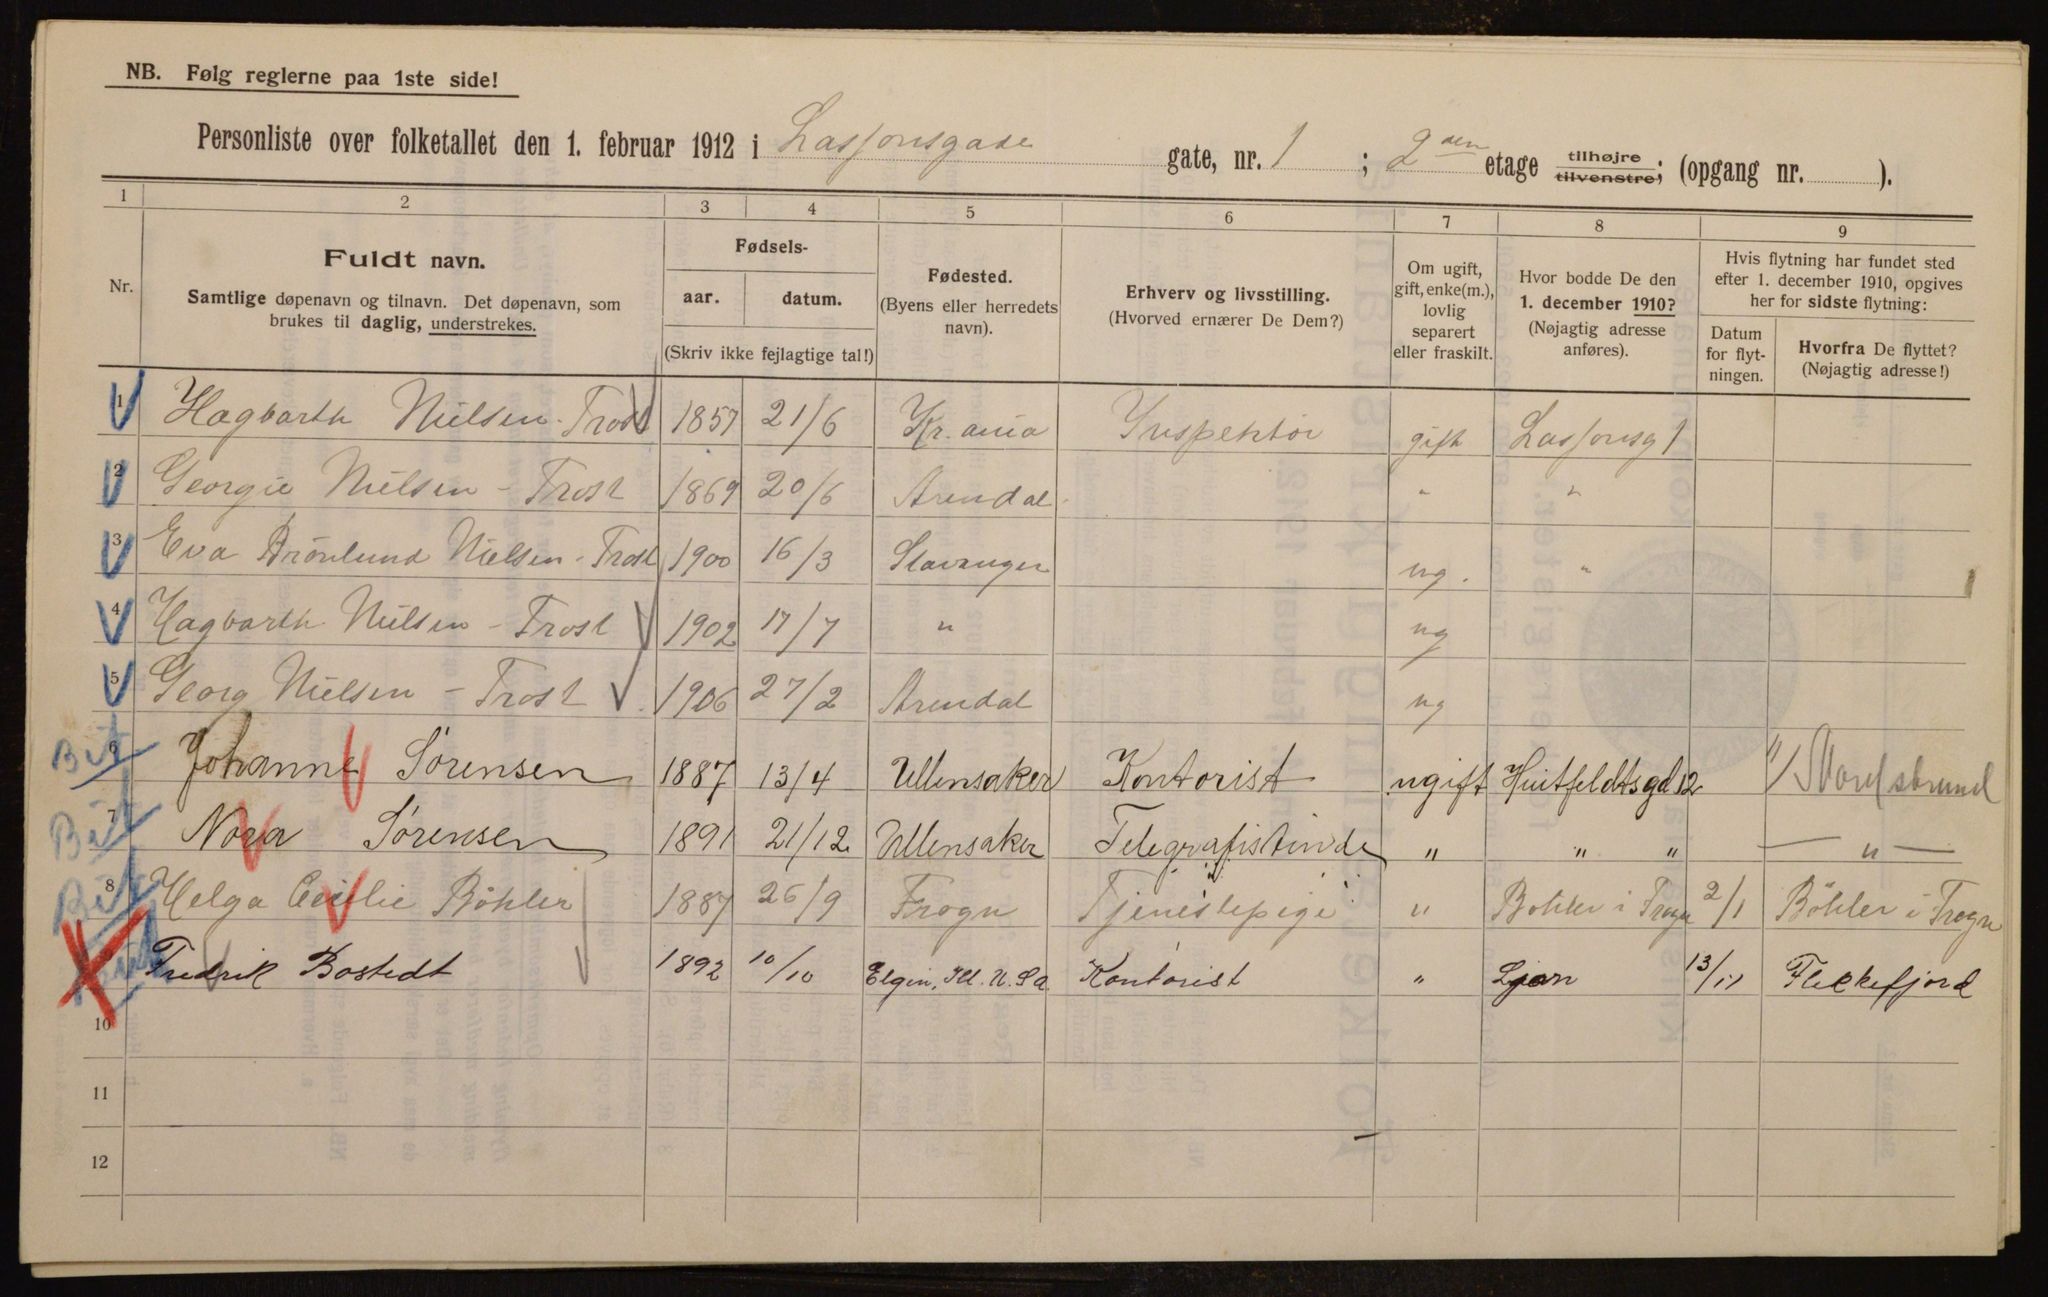 NB. Følg reglerne paa 1ste side!
Personliste over folketallet den 1. februar 1912 i Lassonsgade gate, nr. 1 ; 2den etage tilhøjre tilvenstre; (opgang nr. ).
1 2 3 4 5 6 7 8 9
Nr.
Fuldt navn.
Samtlige døpenavn og tilnavn. Det døpenavn, som
brukes til daglig, understrekes.
Fødsels-
aar. datum.
(Skriv ikke fejlagtige tal!)
Fødested.
(Byens eller herredets
navn).
Erhverv og livsstilling.
(Hvorved ernærer De Dem?)
Om ugift,
gift, enke(m.),
lovlig
separert
eller fraskilt.
Hvor bodde De den
1. december 1910?
(Nøjagtig adresse
anføres).
Hvis flytning har fundet sted
efter 1. december 1910, opgives
her for sidste flytning:
Datum
for flyt-
ningen.
Hvorfra De flyttet?
(Nøjagtig adresse!)
1 Hagbarth Nielsen-Trost 1857 21/6 Kr.ania Inspektör gift Lassonsg 1
2 Georgie Nielsen - Trost 1869 20/6 Arendal " "
3 Eva Brönlund Nielsen-Trost 1900 16/3 Stavanger ug. "
4 Hagbarth Nielsen - Trost 1902 17/7 " ug
5 Georg Nielsen - Trost 1906 27/2 Arendal ug
6 Johanne Sörensen 1887 13/4 Ullensaker Kontorist ugift Huitfeldtsgd 12
7 Nora Sörensen 1891 21/12 Ullensaker Telegrafistinde " " " — " —
8 Helga Cecilie Böhler 1887 26/9 Frogn Tjenestepige " Böhler i Frogn 2/1 Böhler i Frogn
Fredrik Bostedt 1892 10/10 Elgin, Ill. U.S.A. Kontorist " Ljan 13/11 Flekkefjord
10
11
12